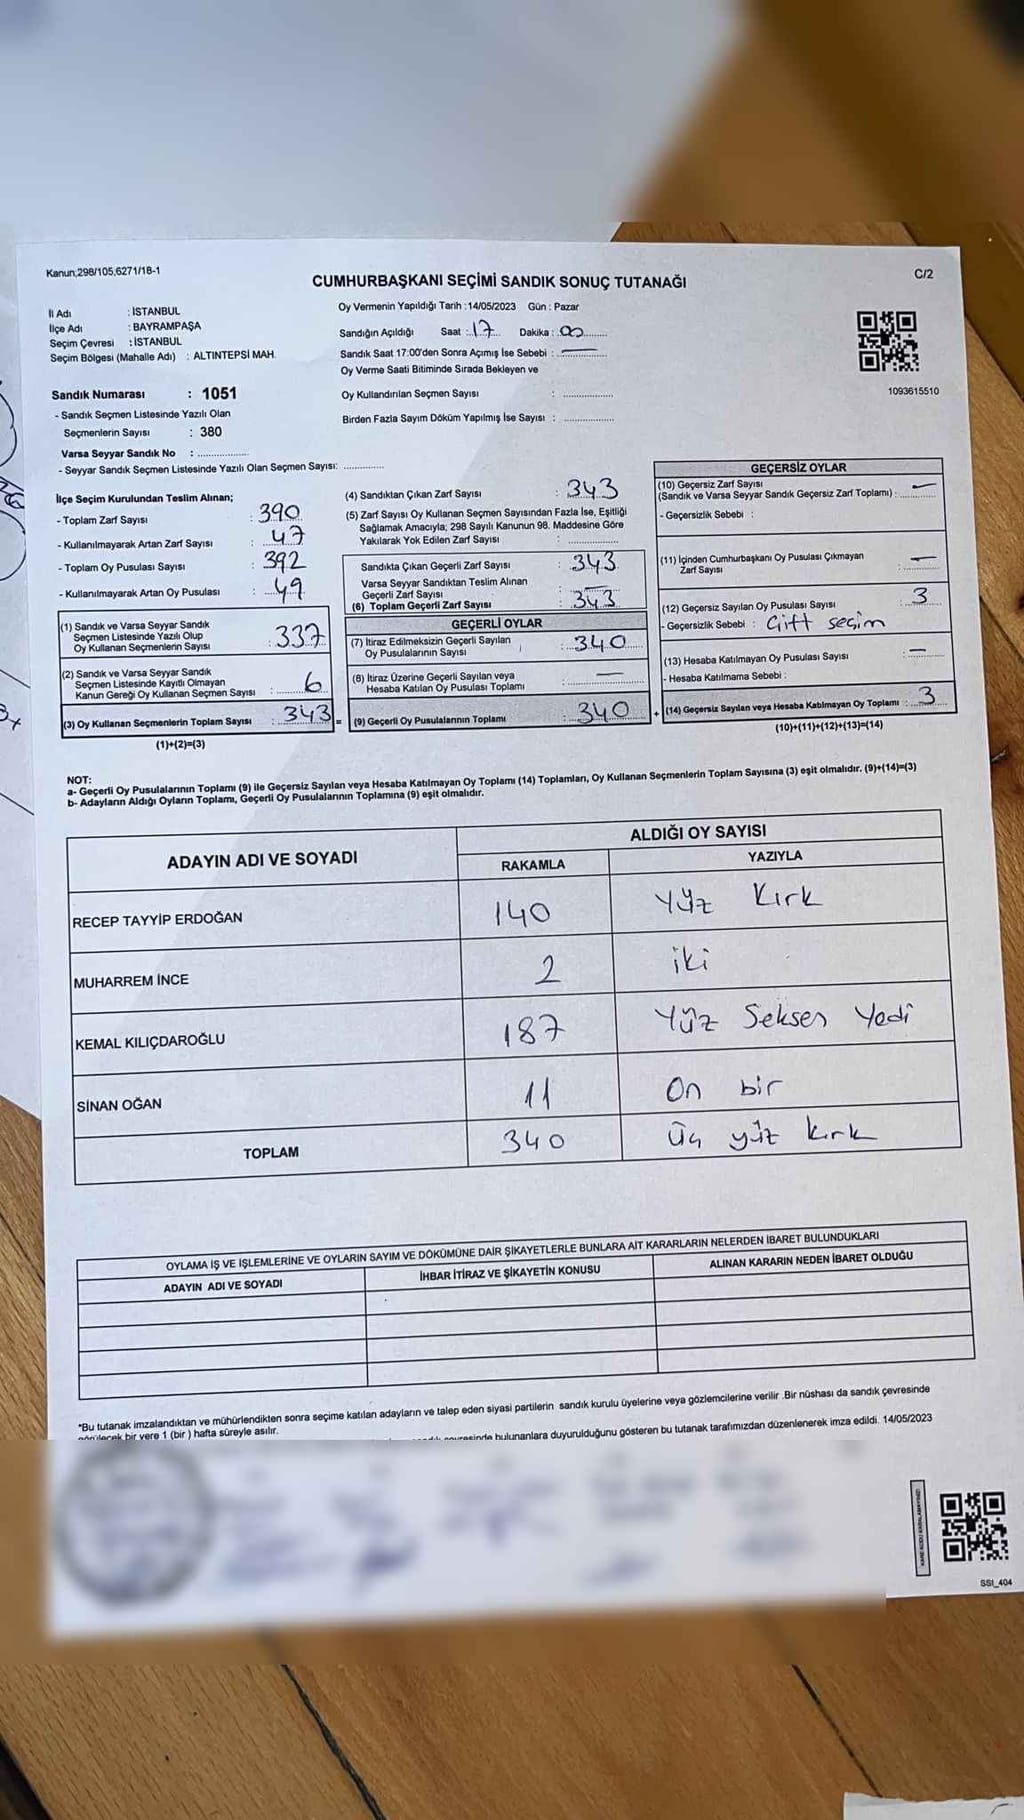 Kanun;298/105,6271/18-1
C/2
CUMHURBAŞKANI SEÇİMİ SANDIK SONUÇ TUTANAĞI
İl Adı : İSTANBUL
İlçe Adı : BAYRAMPAŞA
Seçim Çevresi : İSTANBUL
Seçim Bölgesi (Mahalle Adı) : ALTINTEPSİ MAH.
Oy Vermenin Yapıldığı Tarih :14/05/2023 Gün : Pazar
Sandığın Açıldığı Saat : 17 Dakika : 00
Sandık Saat 17:00'den Sonra Açımış İse Sebebi : —
Oy Verme Saati Bitiminde Sırada Bekleyen ve
Oy Kullandırılan Seçmen Sayısı :
Birden Fazla Sayım Döküm Yapılmış İse Sayısı :
1093615510
Sandık Numarası : 1051
- Sandık Seçmen Listesinde Yazılı Olan
Seçmenlerin Sayısı : 380
Varsa Seyyar Sandık No :
- Seyyar Sandık Seçmen Listesinde Yazılı Olan Seçmen Sayısı:
İlçe Seçim Kurulundan Teslim Alınan;
- Toplam Zarf Sayısı : 390
- Kullanılmayarak Artan Zarf Sayısı : 47
- Toplam Oy Pusulası Sayısı : 392
- Kullanılmayarak Artan Oy Pusulası : 49
(1) Sandık ve Varsa Seyyar Sandık
Seçmen Listesinde Yazılı Olup
Oy Kullanan Seçmenlerin Sayısı : 337
(2) Sandık ve Varsa Seyyar Sandık
Seçmen Listesinde Kayıtlı Olmayan
Kanun Gereği Oy Kullanan Seçmen Sayısı : 6
(3) Oy Kullanan Seçmenlerin Toplam Sayısı : 343 =
(1)+(2)=(3)
(4) Sandıktan Çıkan Zarf Sayısı : 343
(5) Zarf Sayısı Oy Kullanan Seçmen Sayısından Fazla İse, Eşitliği
Sağlamak Amacıyla; 298 Sayılı Kanunun 98. Maddesine Göre
Yakılarak Yok Edilen Zarf Sayısı :
Sandıkta Çıkan Geçerli Zarf Sayısı : 343
Varsa Seyyar Sandıktan Teslim Alınan
Geçerli Zarf Sayısı : —
(6) Toplam Geçerli Zarf Sayısı : 343
GEÇERLİ OYLAR
(7) İtiraz Edilmeksizin Geçerli Sayılan
Oy Pusulalarının Sayısı : 340
(8) İtiraz Üzerine Geçerli Sayılan veya
Hesaba Katılan Oy Pusulası Toplamı : —
(9) Geçerli Oy Pusulalarının Toplamı : 340 +
GEÇERSİZ OYLAR
(10) Geçersiz Zarf Sayısı
(Sandık ve Varsa Seyyar Sandık Geçersiz Zarf Toplamı) : —
- Geçersizlik Sebebi :
(11) İçinden Cumhurbaşkanı Oy Pusulası Çıkmayan
Zarf Sayısı : —
(12) Geçersiz Sayılan Oy Pusulası Sayısı : 3
- Geçersizlik Sebebi : Çift seçim
(13) Hesaba Katılmayan Oy Pusulası Sayısı : —
- Hesaba Katılmama Sebebi :
(14) Geçersiz Sayılan veya Hesaba Katılmayan Oy Toplamı : 3
(10)+(11)+(12)+(13)=(14)
NOT:
a- Geçerli Oy Pusulalarının Toplamı (9) ile Geçersiz Sayılan veya Hesaba Katılmayan Oy Toplamı (14) Toplamları, Oy Kullanan Seçmenlerin Toplam Sayısına (3) eşit olmalıdır. (9)+(14)=(3)
b- Adayların Aldığı Oyların Toplamı, Geçerli Oy Pusulalarının Toplamına (9) eşit olmalıdır.
ADAYIN ADI VE SOYADI
ALDIĞI OY SAYISI
RAKAMLA YAZIYLA
RECEP TAYYİP ERDOĞAN 140 Yüz Kırk
MUHARREM İNCE 2 iki
KEMAL KILIÇDAROĞLU 187 Yüz Seksen Yedi
SİNAN OĞAN 11 On bir
TOPLAM 340 Üç yüz kırk
OYLAMA İŞ VE İŞLEMLERİNE VE OYLARIN SAYIM VE DÖKÜMÜNE DAİR ŞİKAYETLERLE BUNLARA AİT KARARLARIN NELERDEN İBARET BULUNDUKLARI
ADAYIN ADI VE SOYADI İHBAR İTİRAZ VE ŞİKAYETİN KONUSU ALINAN KARARIN NEDEN İBARET OLDUĞU
*Bu tutanak imzalandıktan ve mühürlendikten sonra seçime katılan adayların ve talep eden siyasi partilerin sandık kurulu üyelerine veya gözlemcilerine verilir .Bir nüshası da sandık çevresinde
görülecek bir yere 1 (bir ) hafta süreyle asılır.
bulunanlara duyurulduğunu gösteren bu tutanak tarafımızdan düzenlenerek imza edildi. 14/05/2023
SSI_404